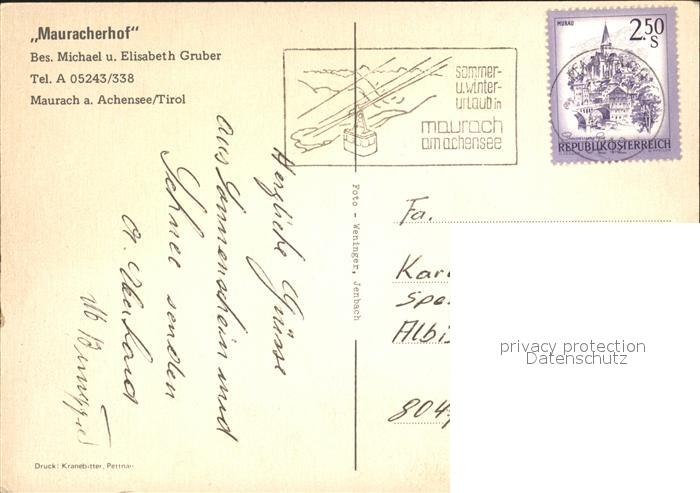 „Mauracherhof"
Bes. Michael u. Elisabeth Gruber
Tel. A 05243/338
Maurach a. Achensee/Tirol
sommer-
u.winter-
urlaub in
maurach
am achensee
MURAU
2.50
S
REPUBLIK ÖSTERREICH
Herzliche Grüsse
aus Sonnenschein und
Schnee senden
Foto - Weninger, Jenbach
Fa.
Kar
Spe
Albi
804
privacy protection
Datenschutz
Druck: Kranebitter, Pettnau